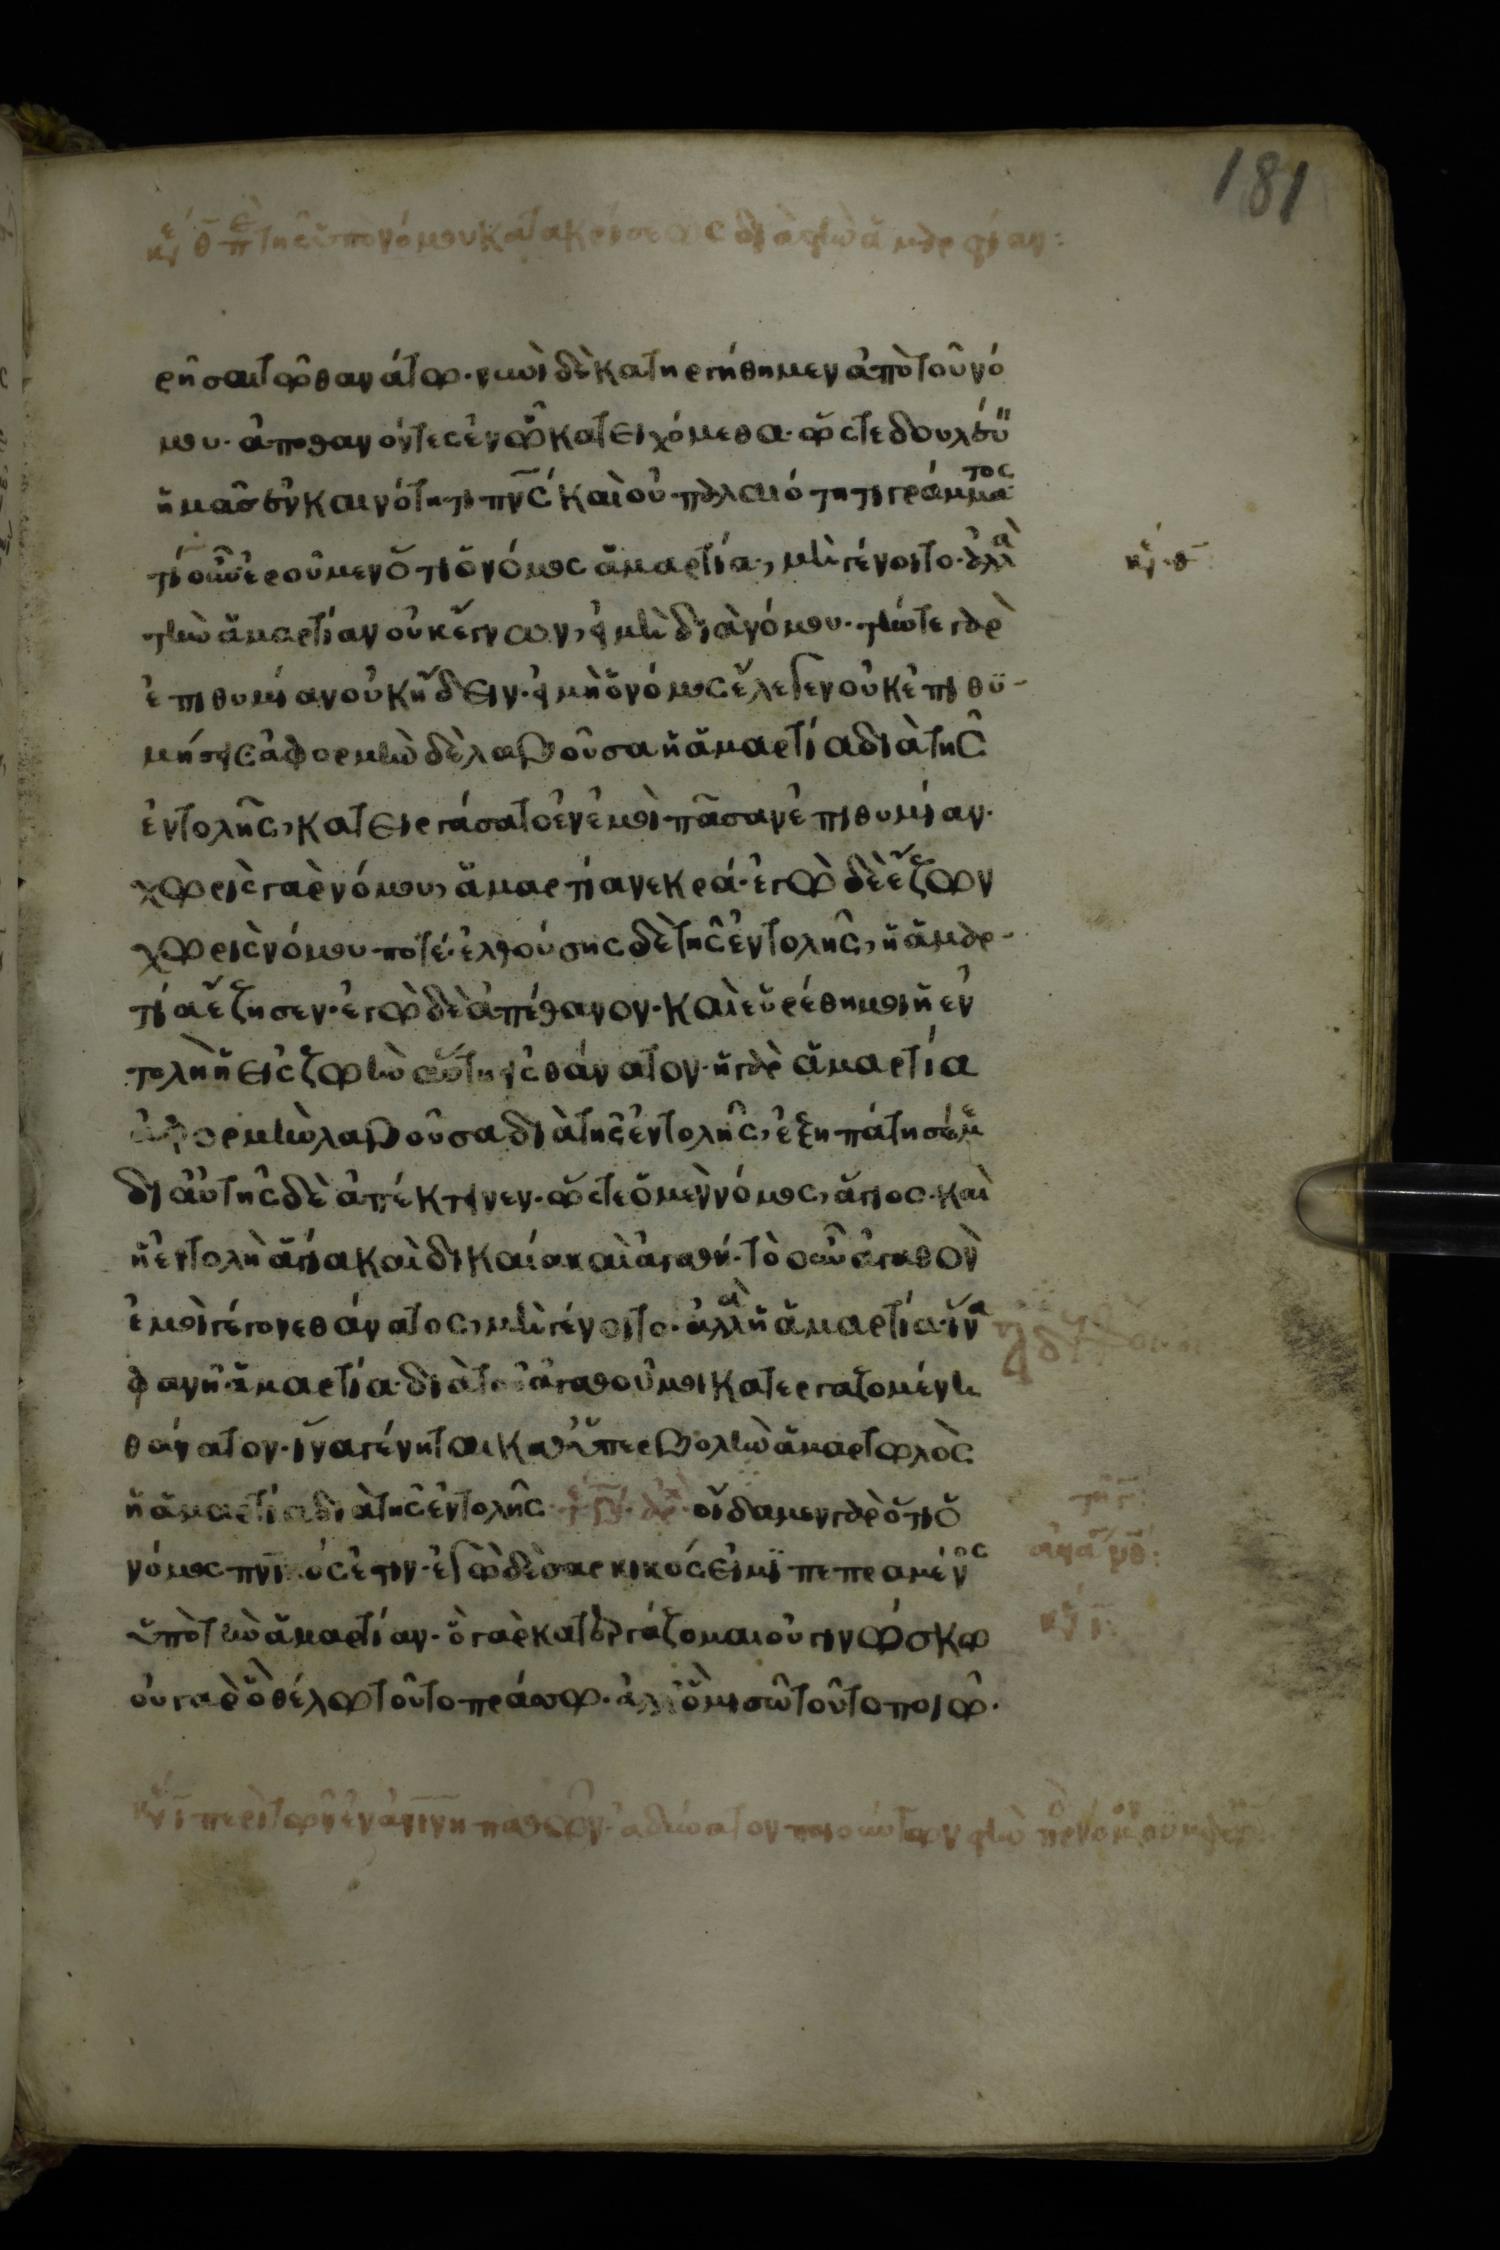 181
κε θ επι της υπο νόμου κατακρίσεως διὰ τὴν ἁμαρτίαν:
ρῆσαι τῷ θανάτῳ· νυνὶ δὲ κατηργήθημεν ἀπὸ τοῦ νό
μου· ἀποθανόντες ἐν ᾧ κατειχόμεθα· ὥστε δουλεύειν
ἡμᾶς ἐν καινότητι πνς καὶ οὐ παλαιότητι γράμματος
τί οὖν ἐροῦμεν ὅτι ὁ νόμος ἁμαρτία, μὴ γένοιτο· ἀλλὰ
κε· θ
τὴν ἁμαρτίαν οὐκ ἔγνων, εἰ μὴ διὰ νόμου· τήν τε γὰρ
ἐπιθυμίαν οὐκ ᾔδειν· εἰ μὴ ὁ νόμος ἔλεγεν οὐκ ἐπιθυ-
μήσεις ἀφορμὴν δὲ λαβοῦσα ἡ ἁμαρτία διὰ τῆς
ἐντολῆς, κατειργάσατο ἐν ἐμοὶ πᾶσαν ἐπιθυμίαν·
χωρὶς γὰρ νόμου, ἁμαρτία νεκρά· ἐγὼ δὲ ἔζων
χωρὶς νόμου ποτέ· ἐλθούσης δὲ τῆς ἐντολῆς, ἡ ἁμαρ-
τία ἔζησεν· ἐγὼ δὲ ἀπέθανον· καὶ εὑρέθη μοι ἡ ἐν
τολὴ ἡ εἰς ζωὴν αὕτη εἰς θάνατον· ἡ γὰρ ἁμαρτία
ἀφορμὴν λαβοῦσα διὰ τῆς ἐντολῆς, ἐξηπάτησέ με
δι αὐτῆς δὲ ἀπέκτεινεν· ὥστε ὁ μὲν νόμος, ἅγιος· καὶ
ἡ ἐντολὴ ἁγία καὶ δικαία καὶ ἀγαθή· τὸ οὖν ἀγαθὸν
ἐμοὶ γέγονε θάνατος, μὴ γένοιτο· ἀλλὰ ἡ ἁμαρτία· ἵνα
φανῇ ἁμαρτία· διὰ τοῦ ἀγαθοῦ μοι κατεργαζομένη
θάνατον· ἵνα γένηται καθ' ὑπερβολὴν ἁμαρτωλὸς
ἡ ἁμαρτία διὰ τῆς ἐντολῆς· οἴδαμεν γὰρ ὅτι ὁ
νόμος πνικός ἐστιν· ἐγὼ δὲ σαρκικός εἰμι πεπραμένος
ὑπὸ τὴν ἁμαρτίαν· ὃ γὰρ κατεργάζομαι οὐ γινώσκω
κε ι
οὐ γὰρ ὃ θέλω τοῦτο πράσσω· ἀλλ' ὃ μισῶ τοῦτο ποιῶ·
κε ι περὶ τῶν ἐν ἀνθρωπίνῃ παθῶν· ἀδύνατον ποιούντων τὴν πρὸς νόμον